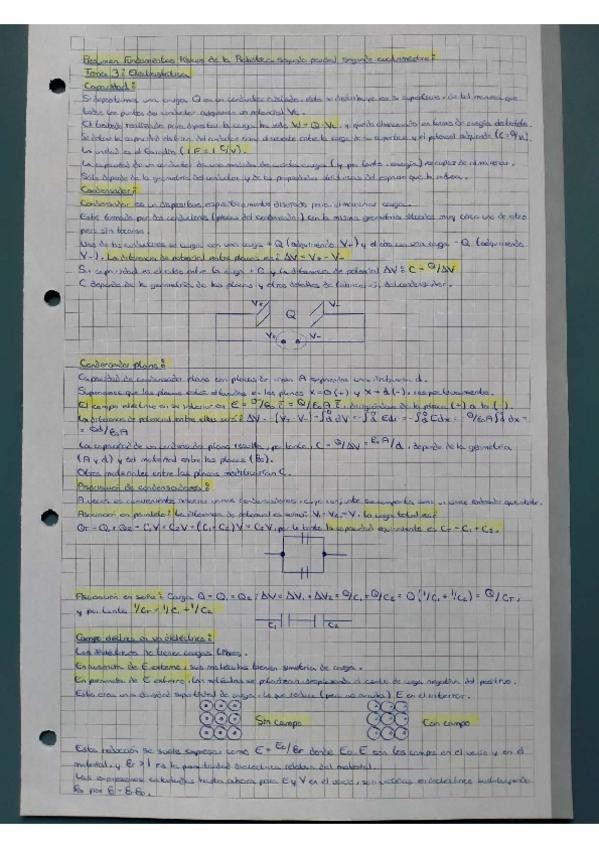 Resumen Fundamentos Físicos de la Robótica segundo parcial segundo cuatrimestre:
Tema 3: Electrostática
Capacidad:
Si depositamos una carga Q en un conductor aislado, ésta se distribuye por su superficie, de tal manera que
todos los puntos del conductor adquieren un potencial V.
El trabajo realizado para depositar la carga ha sido W = Q·V, y queda almacenado en forma de energía
Se define la capacidad eléctrica del conductor como el cociente entre la carga de su superficie y el potencial adquirido (C = Q/V).
La unidad es el Faradio (1F = 1 C/V).
La capacidad de un conductor da una medida de cuánta carga (y por tanto, energía) es capaz de almacenar.
Sólo depende de la geometría del conductor y de las propiedades dieléctricas del espacio que lo rodea.
Condensador:
Condensador es un dispositivo, específicamente diseñado para almacenar carga.
Está formado por dos conductores (placas del condensador) con la misma geometría situados muy cerca uno de otro
pero sin tocarse.
Uno de los conductores se carga con una carga +Q (adquiriendo V+) y el otro con una carga -Q (adquiriendo
V-). La diferencia de potencial entre placas es: ΔV = V+ - V-
Su capacidad es el cociente entre la carga +Q y la diferencia de potencial ΔV: C = Q/ΔV
C depende de la geometría de las placas y otros detalles de fabricación del condensador.
V+ V-
Q
V+ V-
Condensador plano:
Capacidad de condensador plano con placas de área A separadas una distancia d.
Suponemos que las placas están situadas en los planos x=0 (+) y x=d (-), respectivamente.
El campo eléctrico en su interior es E = σ/ε0 i = Q/ε0A i, dirigiéndose de la placa (+) a la (-).
La diferencia de potencial entre ellas será: ΔV
= Qd/ε0A
La capacidad de un condensador plano resulta, por tanto, C = Q/ΔV = ε0A/d, depende de la geometría
(A y d) y del material entre las placas (ε0).
Otros materiales entre las placas modificarían C.
Asociación de condensadores:
A veces es conveniente asociar varios condensadores, cuyo conjunto se comporta como un único condensador equivalente.
Asociación en paralelo: la diferencia de potencial es común: V1 = V2 = V. La carga total es:
QT = Q1 + Q2 = C1V + C2V = (C1 + C2)V = CTV, por lo tanto la capacidad equivalente es CT = C1 + C2.
Asociación en serie: Carga Q = Q1 = Q2; ΔV = ΔV1 + ΔV2 = Q/C1 + Q/C2 = Q(1/C1 + 1/C2) = Q/CT,
y por tanto 1/CT = 1/C1 + 1/C2
C1 C2
Campo eléctrico en un dieléctrico:
Los dieléctricos no tienen cargas libres.
En ausencia de E externo, sus moléculas tienen simetría de carga.
En presencia de E externo, las moléculas se polarizan desplazando el centro de carga negativa del positivo.
Esto crea una densidad superficial de carga, lo que reduce (pero no anula) E en el interior.
Sin campo Con campo
Esta reducción se suele expresar como E = E0/εr donde E0, E son los campos en el vacío y en el
material, y εr > 1 es la permitividad dieléctrica relativa del material.
Las expresiones calculadas hasta ahora para E y V en el vacío, son válidas en dieléctricos sustituyendo
ε0 por ε = εrε0.